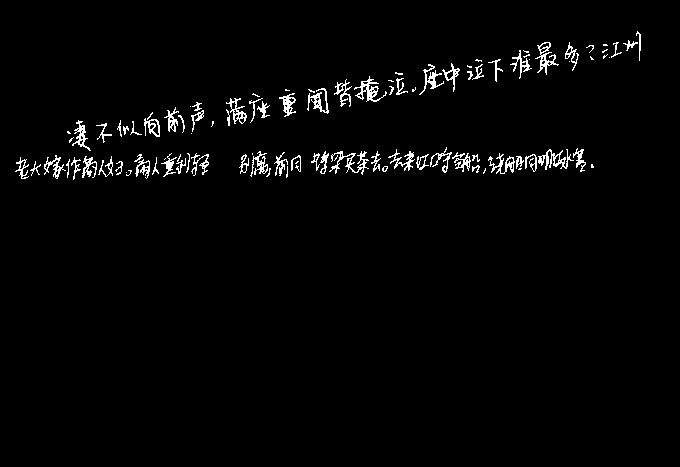 凄不似向前声,满座重闻皆掩泣.座中泣下谁最多?江州
老大嫁作商人妇。商人重利轻 别离前月浮梁买茶去。去来江口守空船,绕船月明江水寒.